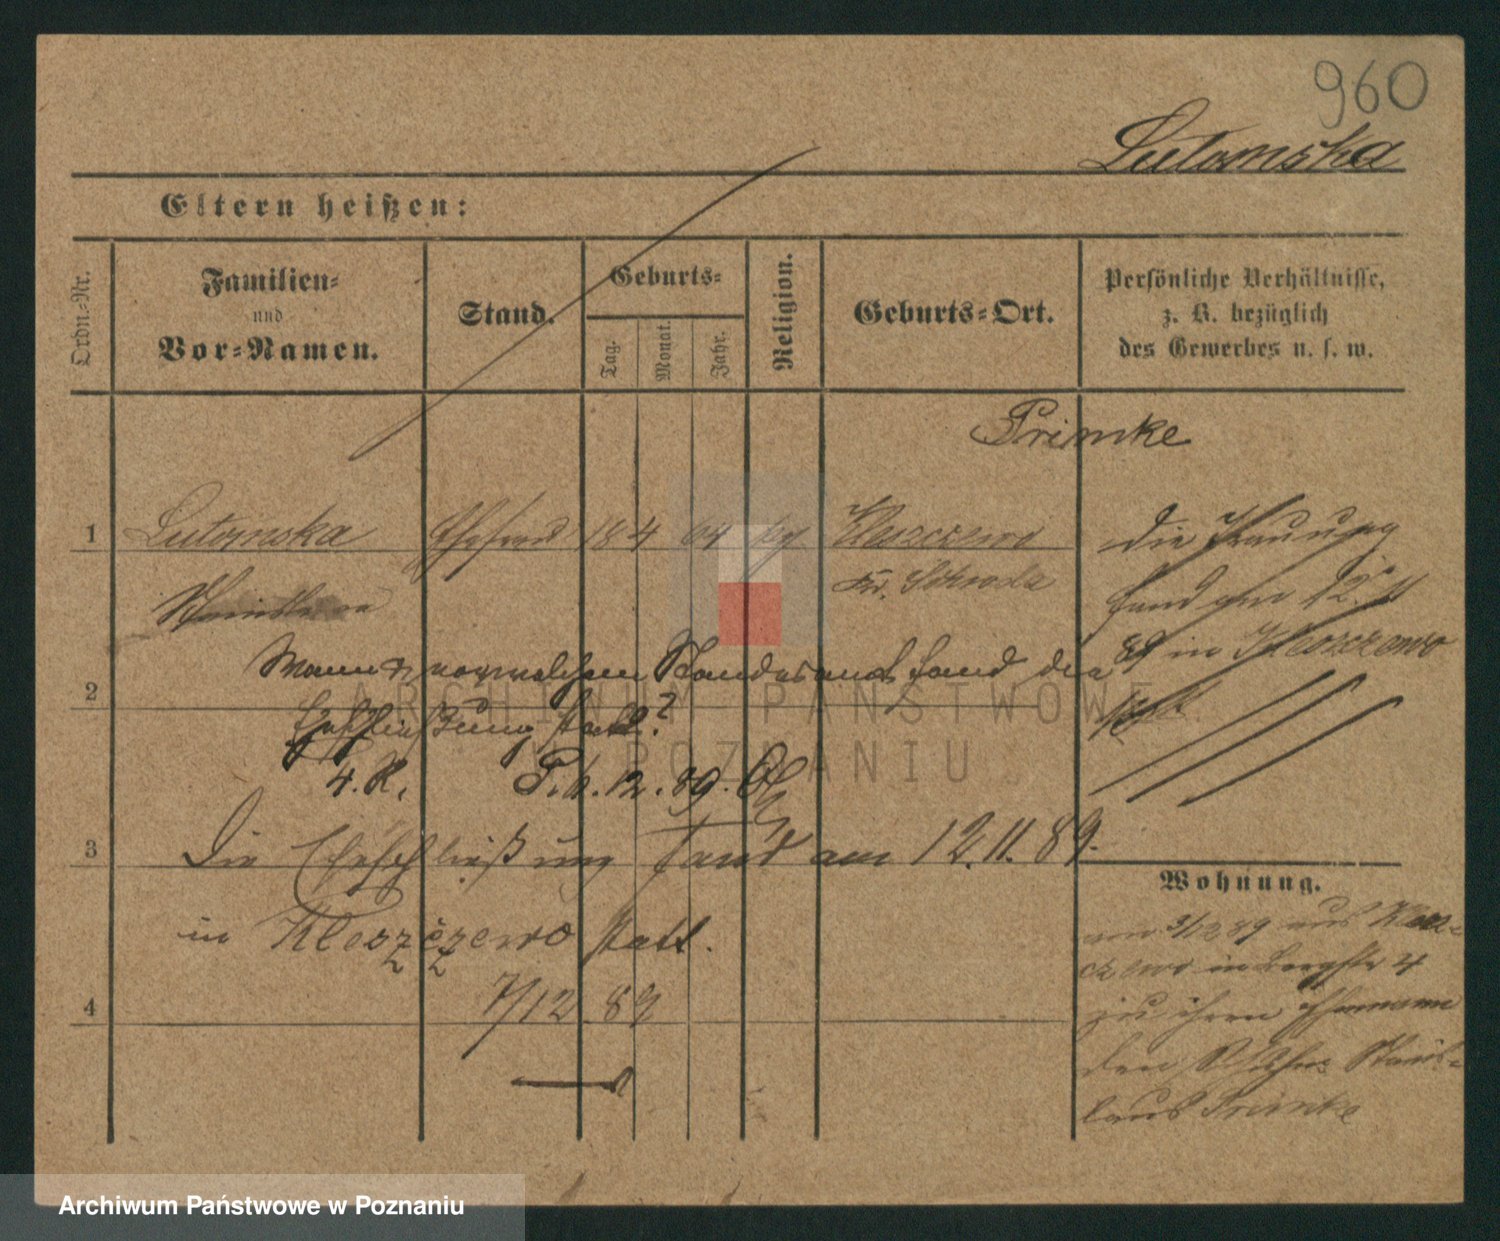 960
Lutomska
Eltern heißen:
Ordn.-Nr.
Familien-
und
Vor-Namen.
Stand.
Geburts-
Tag.
Monat.
Jahr.
Religion.
Geburts-Ort.
Persönliche Verhältnisse,
z. B. bezüglich
des Gewerbes u. s. w.
Primke
1 Lutomska Ehefrau 18 4 64 Kleszczewo
Kr. Schroda
die Trauung
fand am 12. 11
89 in Kleszczewo
statt
2 Wann u. vor welchem Standesamt fand die
Eheschließung statt?
4. R. P. 4. 12. 89.
3 Die Eheschließung fand am 12.11.89.
in Kleszczewo statt.
4 7/12 89
Wohnung.
am 3/12 89 aus Klesz-
czewo in Bergstr 4
zu ihren Ehemann
den Stanis-
laus Primke
ARCHIWUM PAŃSTWOWE
W POZNANIU
Archiwum Państwowe w Poznaniu